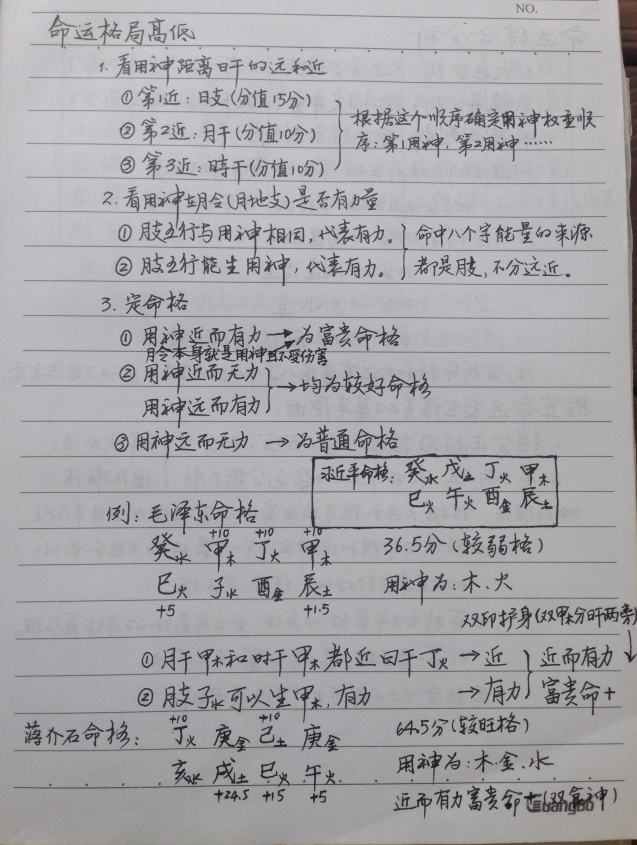 NO.
命运格局高低
1. 看用神距离日干的远和近
① 第1近：日支(分值15分)
② 第2近：月干(分值10分)
③ 第3近：時干(分值10分)
根据这个顺序确定用神权重顺
序：第1用神，第2用神……
2. 看用神在月令(月地支)是否有力量
① 月支五行与用神相同，代表有力。
② 月支五行能生用神，代表有力。
命中八个字能量的来源
都是月支，不分远近。
3. 定命格
① 用神近而有力 → 为富貴命格
月令本身就是用神且不受伤害
② 用神近而无力
用神远而有力
→ 均为较好命格
③ 用神远而无力 → 为普通命格
习近平命格： 癸水 戊土 丁火 甲木
巳火 午火 酉金 辰土
例：毛泽东命格
+10 +10
癸水 甲木 丁火 甲木
36.5分(较弱格)
巳火 子水 酉金 辰土
用神为：木、火
+5 +1.5
双印护身(双甲木分吖两旁)
① 月干甲木和时干甲木都近日干丁火 → 近
② 月支子水可以生甲木，有力 → 有力
近而有力
富貴命+
蒋介石命格：
+10 +10
丁火 庚金 己土 庚金
64.5分(较旺格)
亥水 戌土 巳火 午火
用神为：木、金、水
+24.5 +15 +5
近而有力富貴命+(双食神)
Guangbo